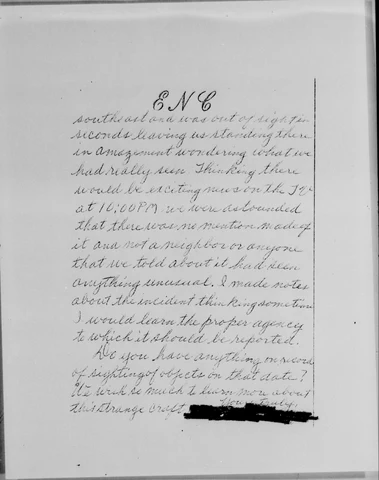 ENC
southeast and was out of sight in
seconds leaving us standing there
in amazement wondering what we
had really seen. Thinking there
would be exciting news on the
at 10:00 PM we were astounded
that there was no mention made of
it and not a neighbor or anyone
that we told about it had seen
anything unusual. I made notes
about the incident thinking sometime
I would learn the proper agency
to which it should be reported.
Do you have anything on record
of sighting of objects on that date?
wish so much to learn more about
this strange craft.
Yours truly,